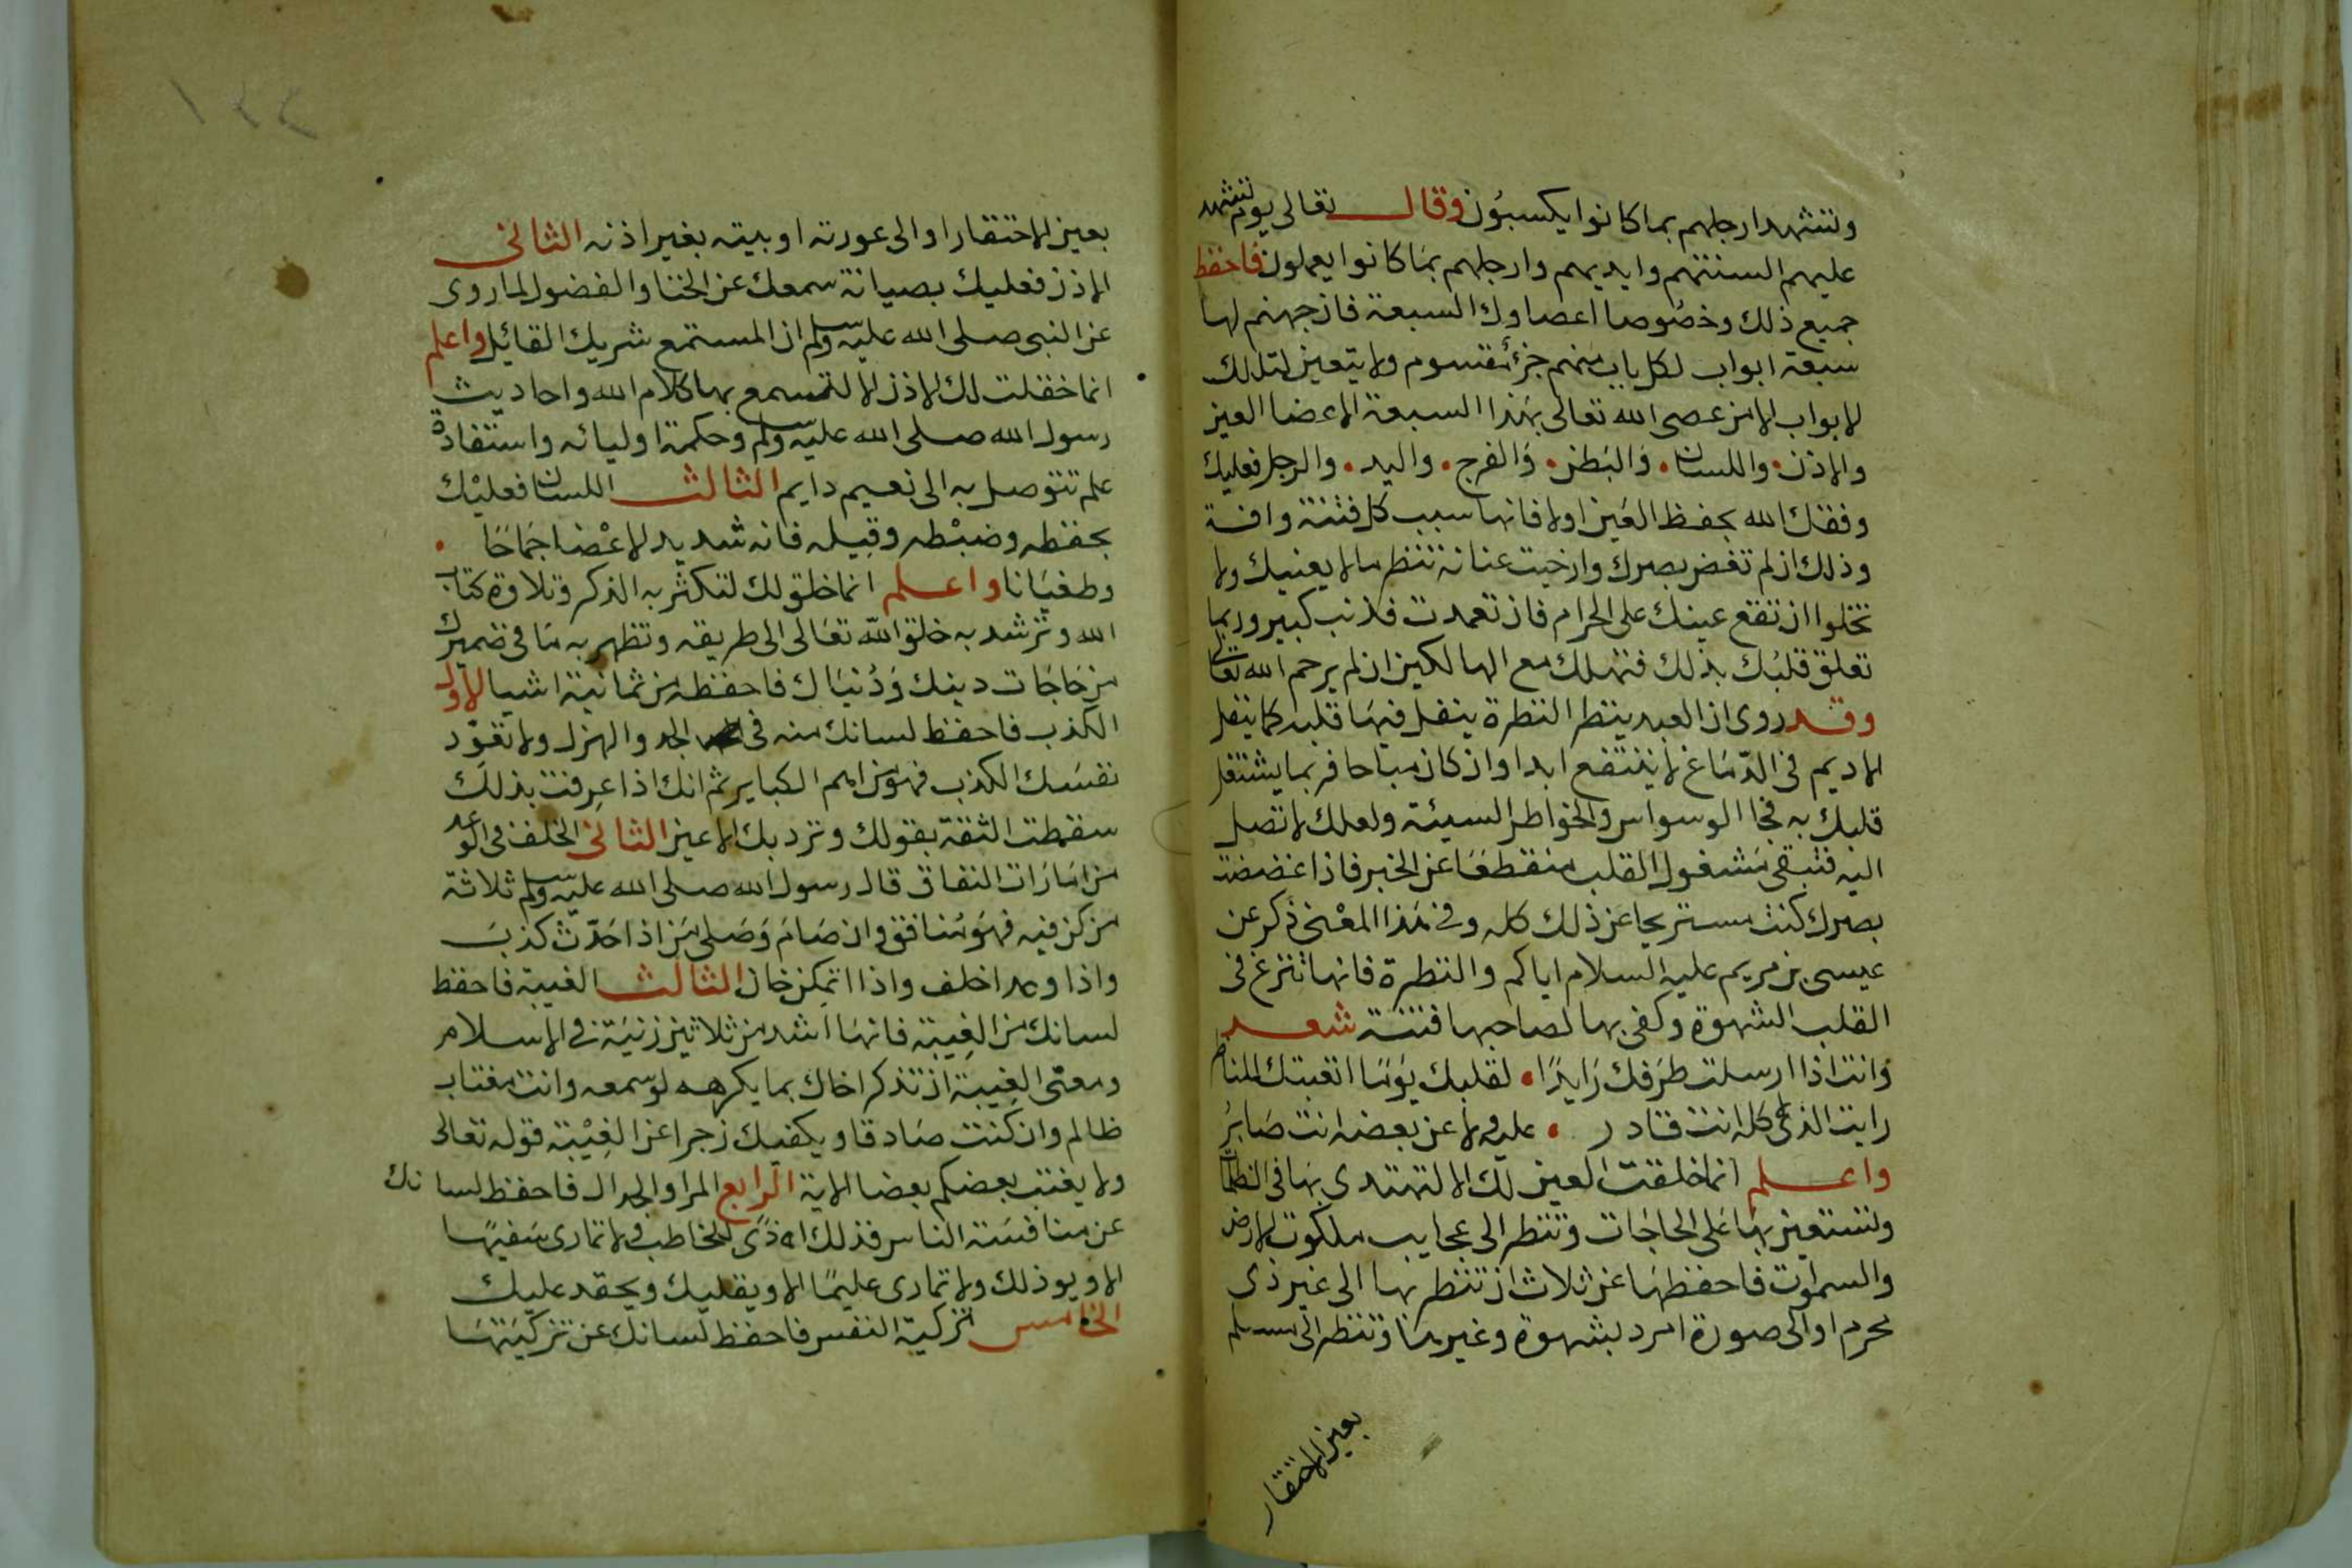 وتشهد ارجلهم بما كانوا يكسبون وقال تعالى يوم تشهد
عليهم السنتهم وايديهم وارجلهم بما كانوا يعملون فاحفظ
جميع ذلك وخصوصا اعضاوك السبعة فان جهنم لها
سبعة ابواب لكل باب منهم جزء مقسوم ولا يتعين لتلك
الابواب الا من عصى الله تعالى بهذا السبعة الاعضا العين
والاذن واللسان والبطن والفرج واليد والرجل فعليك
وفقك الله بحفظ العين اولا فانها سبب كل فتنة وافة
وذلك ان لم تغض بصرك وارخيت عنانه تنظر مالا يعنيك ولا
تخلوا ان تقع عينك على الحرام فان تعمدت فذنب كبير وربما
تعلق قلبك بذلك فتهلك مع الهالكين ان لم يرحم الله تعالى
وقد روى ان العبد ينظر النظرة ينغل فيها قلبه كما ينغل
الاديم في الدباغ لا ينتفع ابدا وان كان مباحا فربما يشتغل
قلبك به فجا الوسواس والخواطر السيئة ولعلك لا تصل
اليه فتبقى مشغول القلب منقطعا عن الخير فاذا غضضت
بصرك كنت مستريحا عن ذلك كله وفي هذا المعنى ذكر عن
عيسى بن مريم عليه السلام اياكم والنظرة فانها تزرع في
القلب الشهوة وكفى بها لصاحبها فتنة شعر
وانت اذا ارسلت طرفك رايدا لقلبك يوما اتعبتك المناظر
رايت الذي لا كله انت قادر عليه ولا عن بعضه انت صابر
واعلم انما خلقت العين لك الا لتهتدى بها في الظلمات
وتستعين بها على الحاجات وتنظر الى عجايب ملكوت الارض
والسموات فاحفظها عن ثلاث ان تنظر بها الى غير ذى
محرم او الى صورة امرد بشهوة وغيرها وتنظر الى مسلم
بعين الاحتقار
بعين الاحتقار او الى عورته او بيته بغير اذنه الثانى
الاذن فعليك بصيانة سمعك عن الخنا والفضول لما روى
عن النبى صلى الله عليه وسلم ان المستمع شريك القائل واعلم
انما خقلت لك الاذن الا لتسمع بها كلام الله واحاديث
رسول الله صلى الله عليه وسلم وحكمة اوليائه واستفادة
علم تتوصل به الى نعيم دايم الثالث اللسان فعليك
بحفظه وضبطه وقيله فانه شديد الاعضا جماحا
وطغيانا واعلم انما خلق لك لتكثر به الذكر وتلاوة كتاب
الله وترشد به خلق الله تعالى الى طريقه وتظهر به ما في ضميرك
من حاجات دينك ودنياك فاحفظه من ثمانية اشيا الاول
الكذب فاحفظ لسانك منه في الجد والهزل ولا تعود
نفسك الكذب فهو من امم الكباير ثم انك اذا عرفت بذلك
سقطت الثقة بقولك وتزدريك الاعين الثانى الخلف في الوعد
من امارات النفاق قال رسول الله صلى الله عليه وسلم ثلاثة
من كن فيه فهو منافق وان صام وصلى من اذا حدث كذب
واذا وعد اخلف واذا اتمن خان الثالث الغيبة فاحفظ
لسانك من الغيبة فانها اشد من ثلاثين زنية في الاسلام
ومعنى الغيبة ان تذكر اخاك بما يكرهه لو سمعه وانت مغتاب
ظالم وان كنت صادقا ويكفيك زجرا عن الغيبة قوله تعالى
ولا يغتب بعضكم بعضا الاية الرابع المرا والجدال فاحفظ لسانك
عن منافسة الناس فذلك اذى للمخاطب ولا تمارى سفيها
الا ويوذلك ولا تمارى عليما الا ويقليك ويحقد عليك
الخامس تزكية النفس فاحفظ لسانك عن تزكيتها